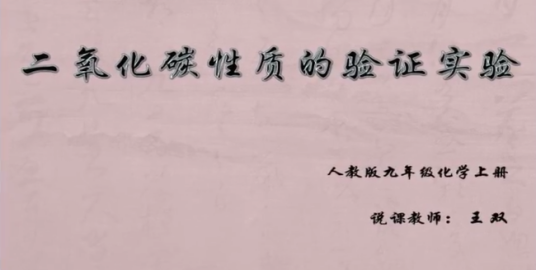 二氧化碳性质的验证实验
人教版九年级化学上册
说课教师：王双